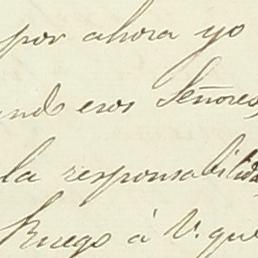 por ahora yo
ando esos Señores,
la responsabilida
Ruego á V. que